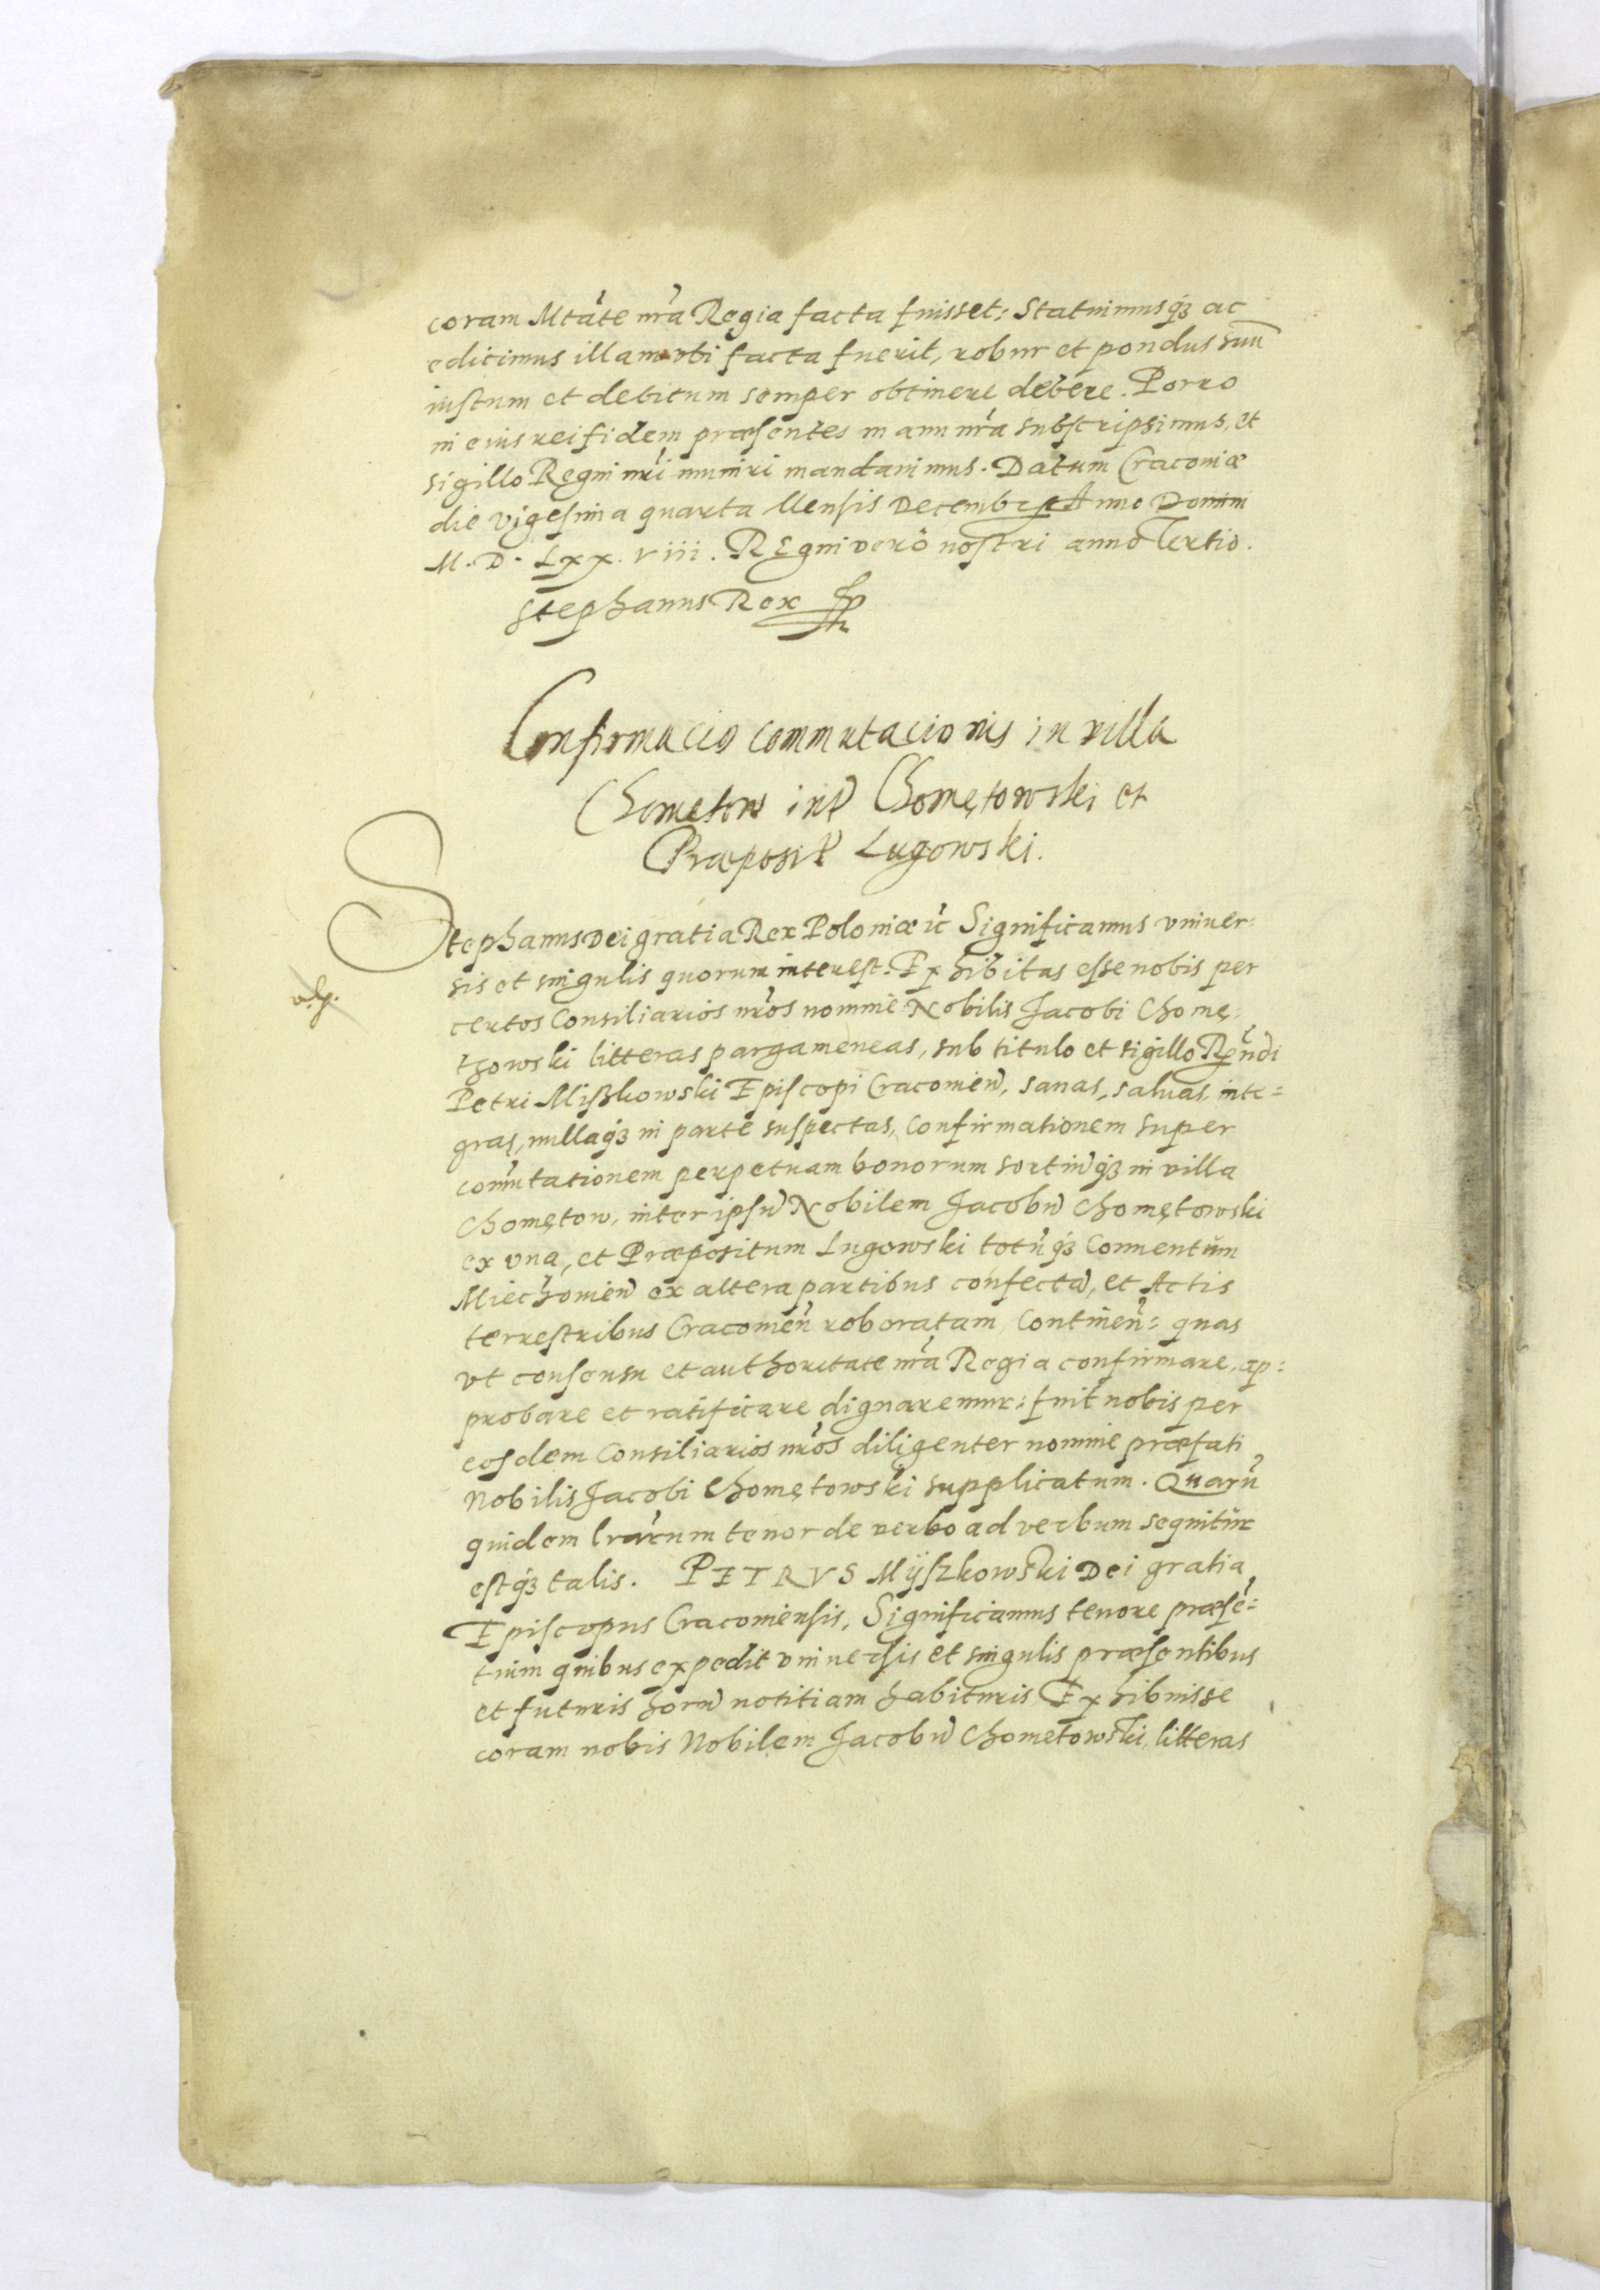 coram Mtate nra Regia facta fuisset, Statuimusq₃ ac
edicimus illam vbi facta fuerit, robur et pondus suu
iustum et debitum semper obtinere debere. Porro
in eius rei fidem præsentes manu nra subscripsimus, et
sigillo Regni nri muniri mandauimus. Datum Cracouiæ
die vigesima quarta Mensis Decembr Anno Domini
M.D.Lxx.viii. Regni vero nostri anno Tertio.
Stephanus Rex
Confirmacio commutacionis in villa
Chometow int Chomętowski et
Præposit Lugowski.
Stephanus Dei gratia Rex Poloniæ ic Significamus vniuer-
sis et singulis quorum interest. Exhibitas esse nobis per
certos Consiliarios nros nomine Nobilis Jacobi Chomę-
thowski litteras pargameneas, sub titulo et sigillo Rendi
Petri Mißkowski Episcopi Cracouien, sanas, saluas, inte-
gras, nullaq₃ in parte suspectas, Confirmationem super
comutationem perpetuam bonorum sortiuq₃ in villa
Chomętow, inter ipsu Nobilem Jacobu Chomętowski
ex vna, et Præpositum Lugowski totuq₃ Conuentum
Miechouien ex altera partibus confecta, et Actis
terrestribus Cracouien roboratam Continen: quas
vt consensu et authoritate nra Regia confirmare, ap-
probare et ratificare dignaremur: fuit nobis per
eosdem Consiliarios nros diligenter nomine præfati
Nobilis Jacobi Chomętowski supplicatum. Quaru
quidem lrarum tenor de verbo ad verbum sequitur
estq₃ talis. PETRVS Mÿszkowski Dei gratia
Episcopus Cracouiensis, Significamus tenore præse-
tium quibus expedit vniuersis et singulis præsentibus
et futuris horu notitiam habituris Exhibuisse
coram nobis Nobilem Jacobu Chometowski, litteras